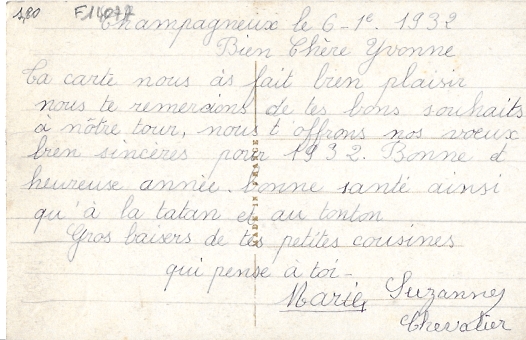 1,80 F14077
Champagneux le 6-1e 1932
Bien Chère Yvonne
Ta carte nous às fait bien plaisir
nous te remercions de tes bons souhaits
à nôtre tour, nous t'offrons nos voeux
bien sincères pour 1932. Bonne et
heureuse année. bonne santé ainsi
qu'à la tatan et au tonton
Gros baisers de tes petites cousines
qui pense à toi-
Marie, Suzanne
Chevalier
MADE IN FRANCE